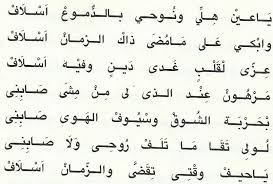 ياعين هلّي ونوحي بالدموع اسلاف
وابكي على مامضى ذاك الزمان اسلاف
عزى لقلب غدى دين وفيه اسلاف
مرهون عند الذى لى من مشى صابنى
بحربة الشوق وسيوف الهوى صابنى
لولى تقا ما تلف روحى ولا صابنى
ياحيف وقتى تقضّى والزمان اسلاف